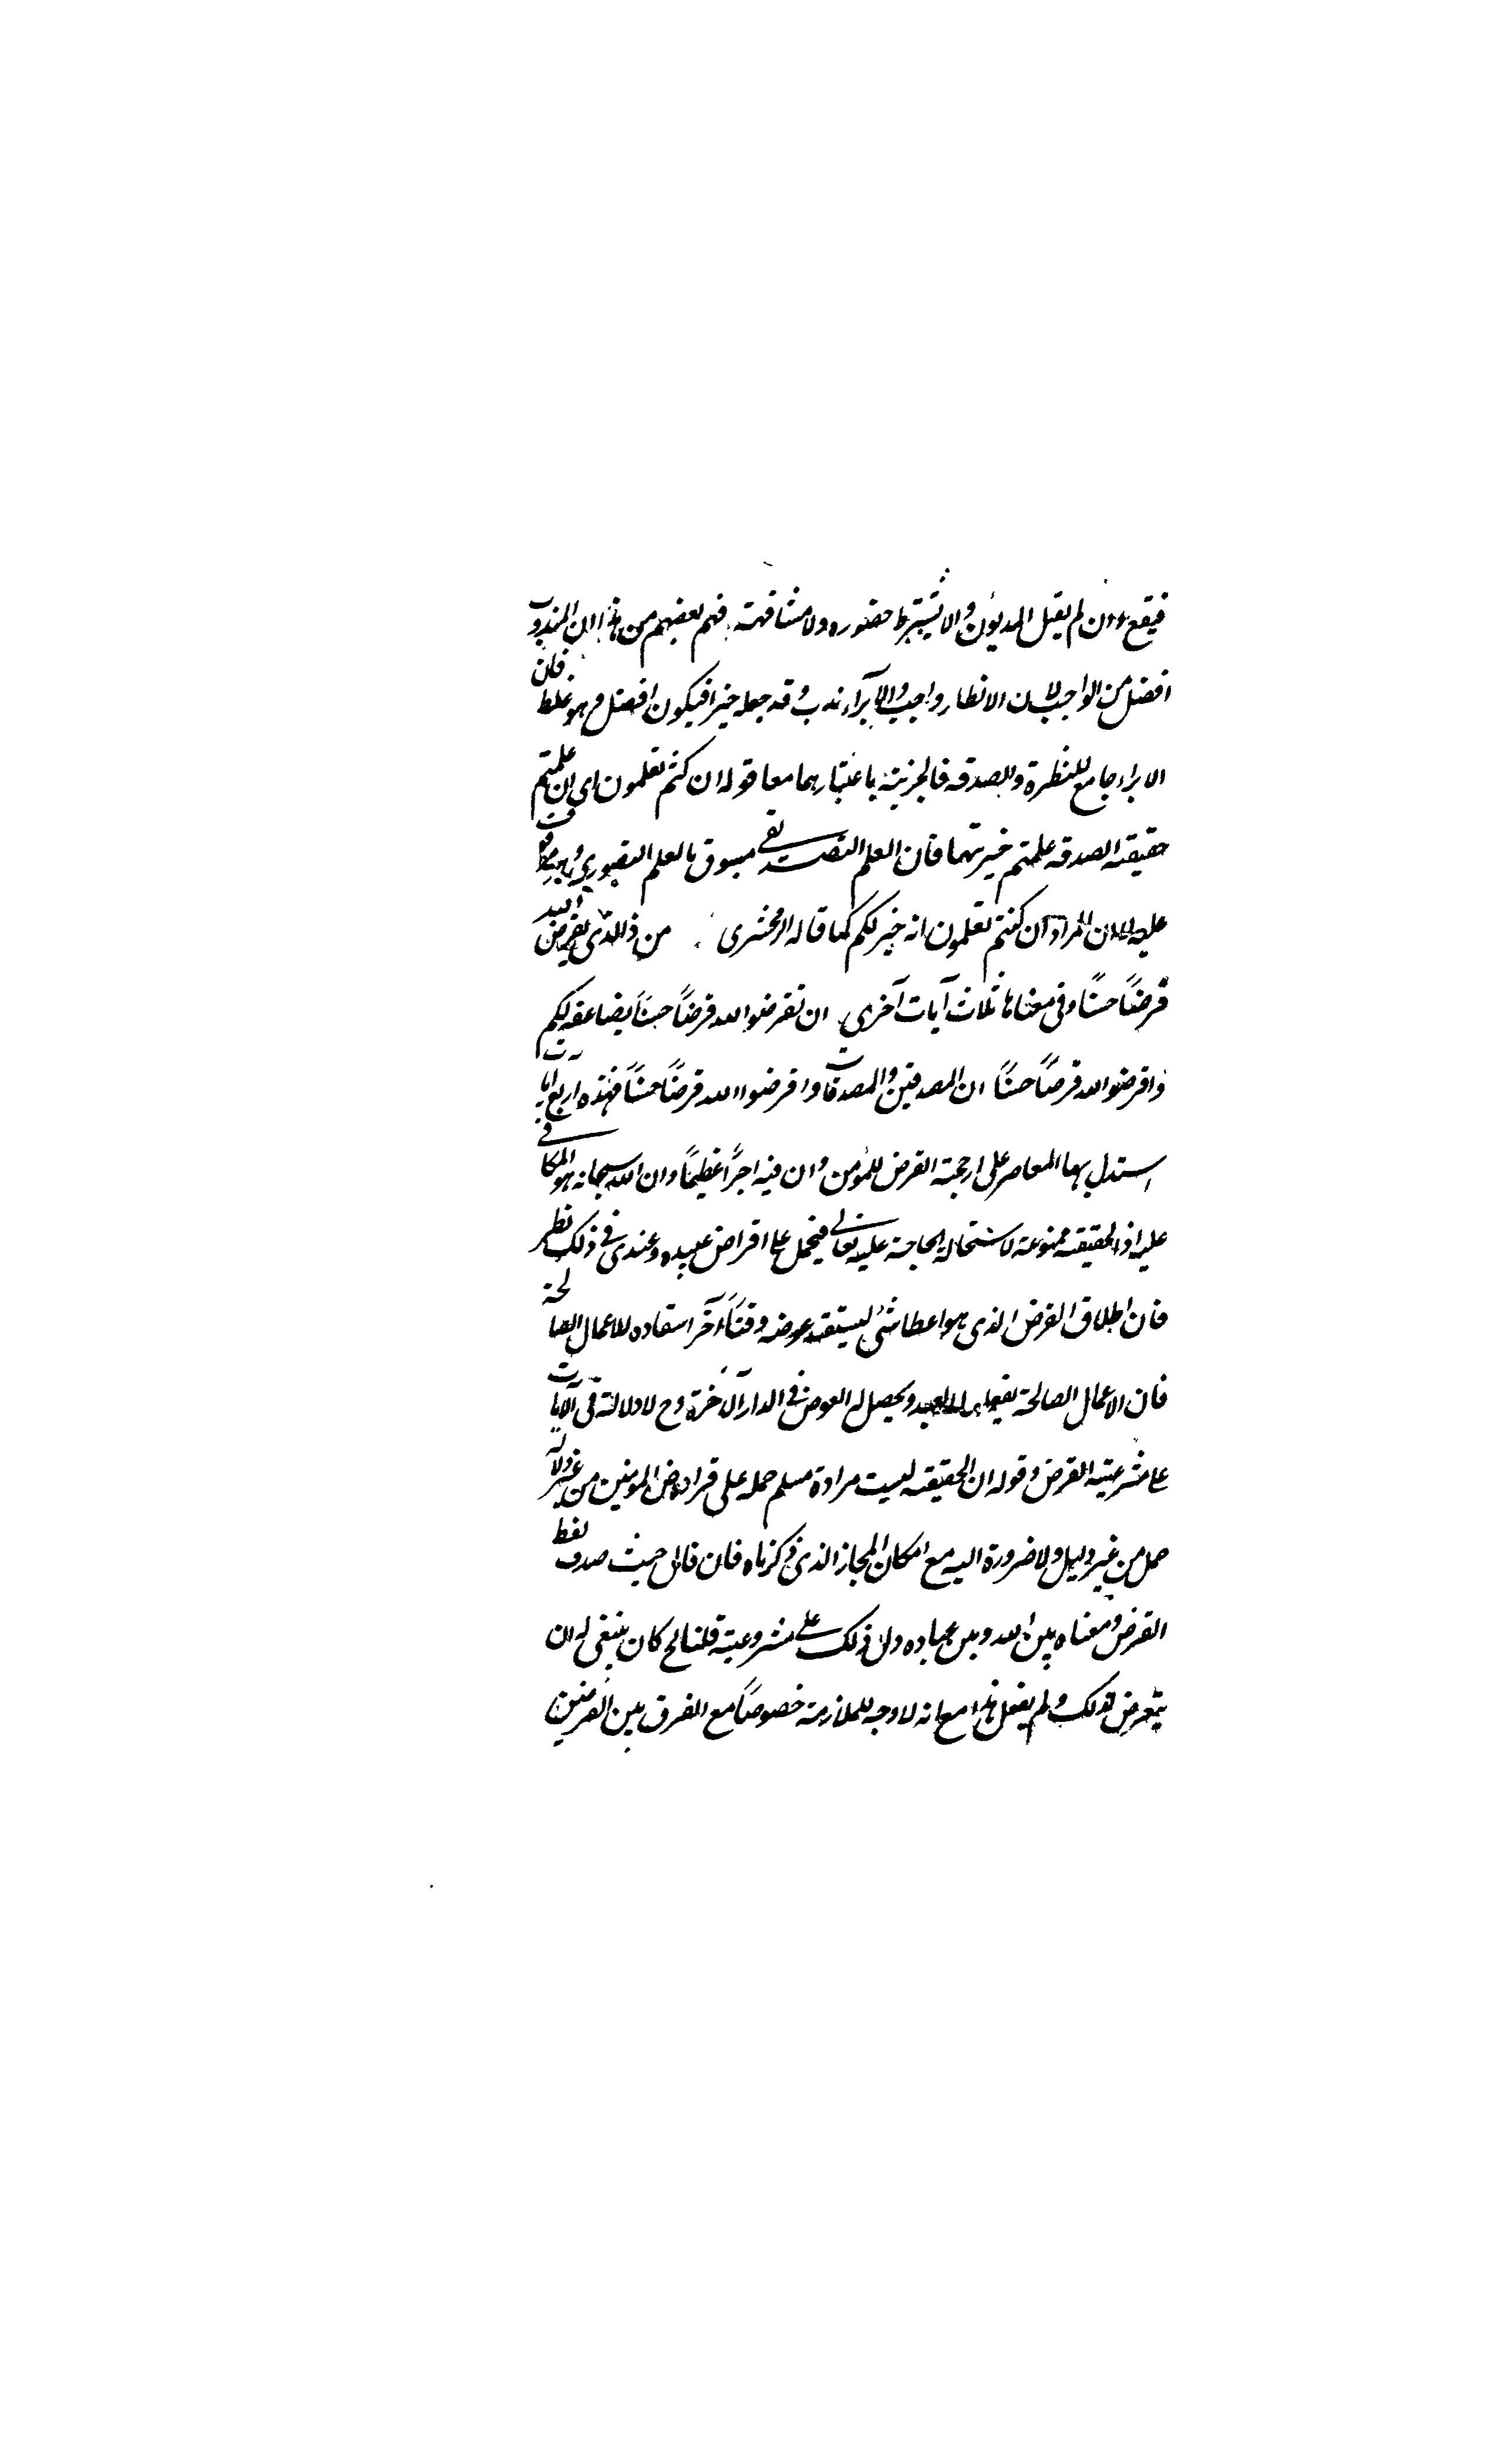 فيقع وان لم يقبل المديون ولا يشترط حضوره ولا مشافهته فهم بعضهم من هذا ان المندوب
افضل من الواجب لان الانظار واجب والابراء ندب وقد جعله خيرا فيكون افضل وهو غلط فان
الابراء جامع للنظرة والصدقه فالخيريته باعتبارهما معا قوله ان كنتم تعلمون اى ان علمتم
حقيقته الصدقه علمتم خيريتهما فان العلم التصديقى مسبوق بالعلم التصورى
عليه لا ان المراد ان كنتم تعلمون انه خير لكم كما قاله الزمخشرى من ذا الذى يقرض الله
قرضًا حسنًا وفى معناها ثلاث آيات آخرى ان تقرضوا الله قرضًا حسنًا يضاعفه لكم
واقرضوا الله قرضًا حسنًا ان المصدقين والمصدقات واقرضوا الله قرضًا حسنًا فهذه اربع ايات
استدل بها المعاصر على ارجحية القرض للمؤمن وان فيه اجرًا عظيمًا وان الله سبحانه هو المكافى
عليه اذ الحقيقته ممنوعته لاستحاله الحاجة عليه تعالى فيحمل على اقراض عبيده وعندى فى ذلك نظر
فان اطلاق القرض الذى هو اعطا شئ ليستعيد عوضه وقتًا آخر استعاده للاعمال الصالحة
فان الاعمال الصالحة يفعلها العبد ويحصل له العوض فى الدار الآخرة وح لا دلالة فى الآيات
على مشرعيته القرض وقوله ان الحقيقته ليست مرادة مسلم حمله على قراض المومنين من غير دلاله
حمل من غير دليل ولا ضرورة اليه مع امكان المجاز الذى ذكرناه فان قال حيث صدق لفظ
القرض ومعناه بين الله وبين عباده دل ذلك على مشروعيته قلنا لم كان ينبغى له ان
يتعرض لذلك ولم يفعل هذا مع انه لا وجه للملازمة خصوصًا مع الفرق بين القرضين